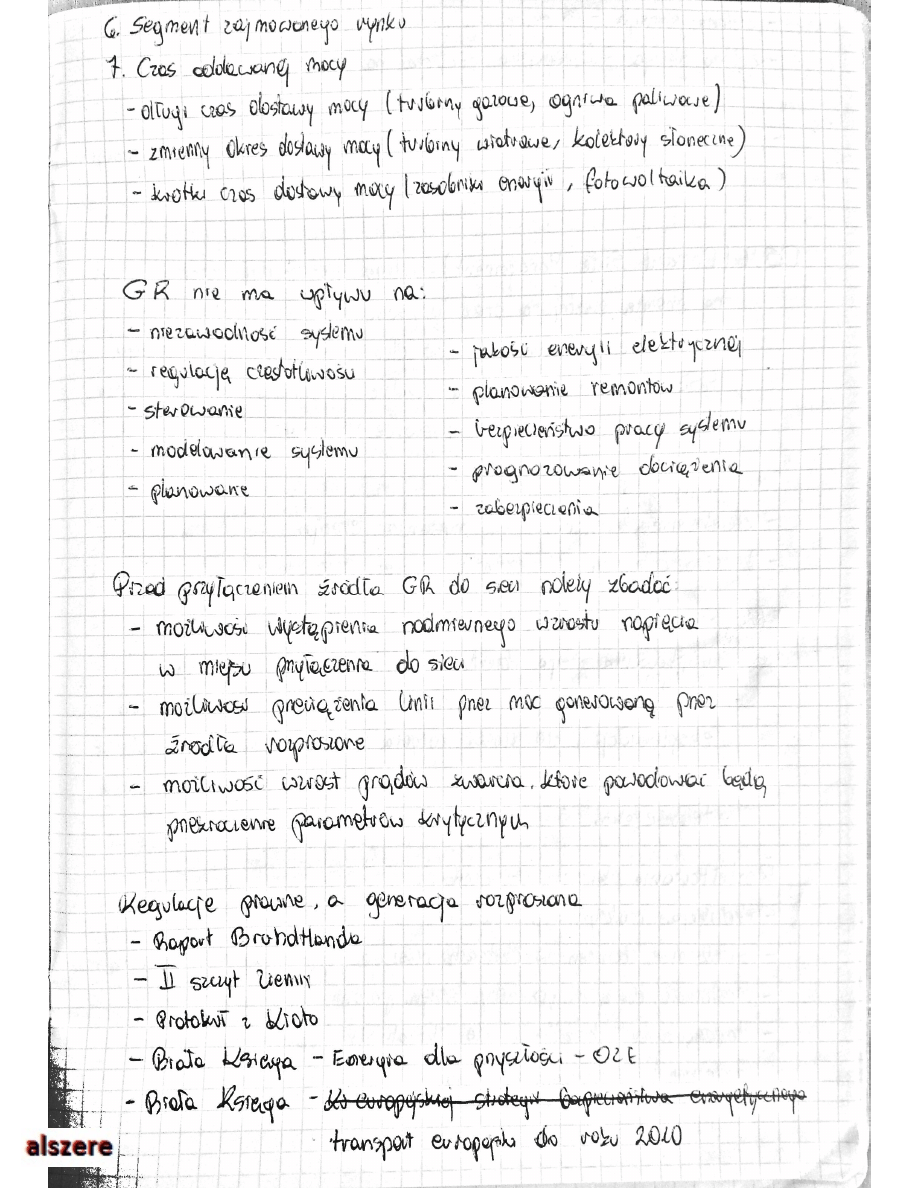 6. Segment zajmowanego rynku
7. Czas oddawanej mocy
- długi czas dostawy mocy (turbiny gazowe, ogniwa paliwowe)
- zmienny okres dostawy mocy (turbiny wiatrowe, kolektory słoneczne)
- krótki czas dostawy mocy (zasobniki energii, fotowoltaika)
GR nie ma wpływu na:
- niezawodność systemu
- regulację częstotliwości
- sterowanie
- modelowanie systemu
- planowane
- jakość energii elektrycznej
- planowanie remontów
- bezpieczeństwo pracy systemu
- prognozowanie obciążenia
- zabezpieczenia
Przed przyłączeniem źródła GR do sieci należy zbadać:
- możliwości wystąpienia nadmiernego wzrostu napięcia
w miejscu przyłączenia do sieci
- możliwość przeciążenia linii przez moc generowaną przez
źródła rozproszone
- możliwość wzrost prądów zwarcia, które powodować będą
przekroczenie parametrów krytycznych
Regulacje prawne, a generacja rozproszona
- Raport Brundtlanda
- II szczyt Ziemi
- Protokół z Kioto
- Biała Księga - Energia dla przyszłości - OZE
- Biała Księga - Ku europejskiej strategii bezpieczeństwa energetycznego
transport europejski do roku 2010
alszere